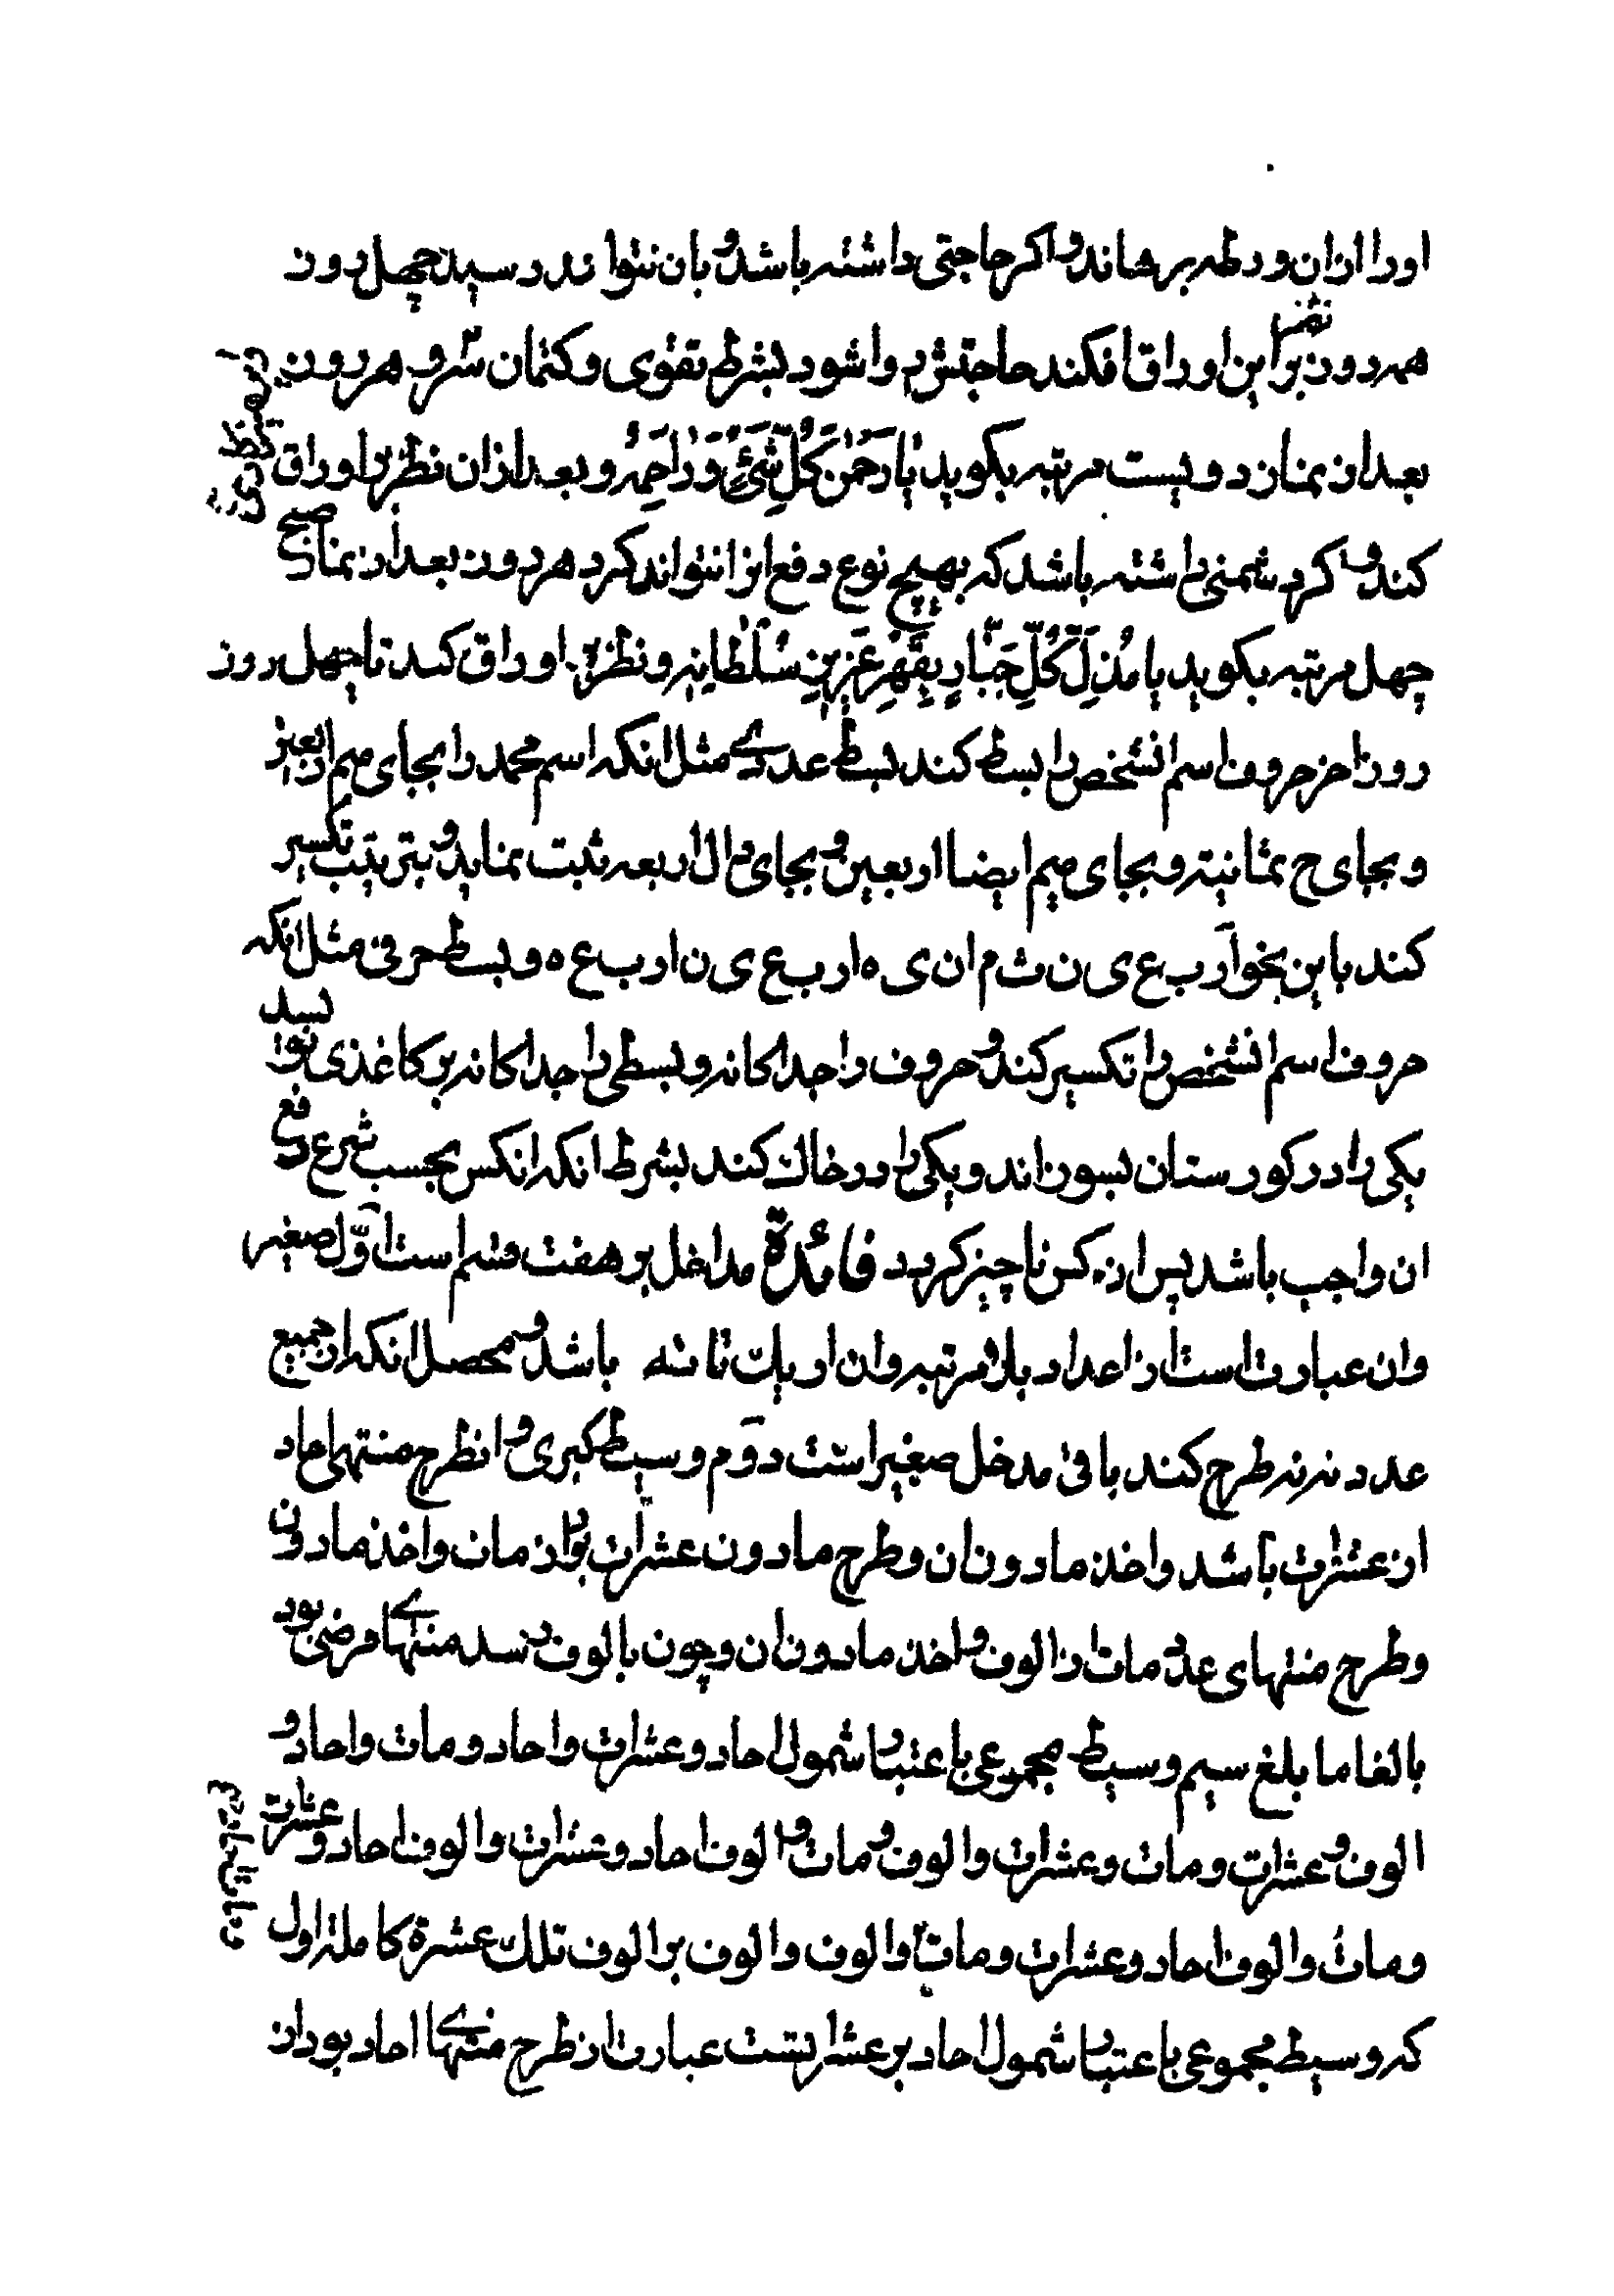 اورا ازان ورطه برهاند و اکر حاجتی داشته باشد و بان نتواند رسید چهل روز
همه روز نظر براین اوراق افکند حاجتش روا شود بشرط تقوی و کتمان سر و هر روز
بعد از نماز دویست مرتبه بکوید یا رَحمٰنَ کُلِّ شَیْءٍ وَ رَاحِمَهُ و بعد ازان نظر بر اوراق
کند و اکر دشمنی داشته باشد که بهیچ نوع دفع انرا نتواند کرد هر روز بعد از نماز صبح
چهل مرتبه بکوید یا مُذِلَّ کُلِّ جَبَّارٍ بِقَهْرِ عَزِیزِ سُلْطَانِهِ و نظر بر اوراق کند تا چهل روز
روز اخر حروف اسم انشخص را بسط کند بسط عددی مثل انکه اسم محمد را بجای میم اربعین
و بجای ح ثمانیة و بجای میم ایضا اربعین و بجای دال اربعه ثبت نماید و بترتیب تکسیر
کند باین نحو ا ر ب ع ی ن ث م ا ن ی ه ا ر ب ع ی ن ا ر ب ع ه و بسط حرفی مثل انکه
حروف اسم انشخص را تکسیر کند و حروف را جداکانه و بسطی را جداکانه بر کاغذی نویسد
یکی را در کورستان بسوزاند و یکی را در خاک کند بشرط انکه انکس بحسب شرع دفع
ان واجب باشد پس ان کس ناچیز کردد فائدة مداخل بر هفت قسم است اول صغیر
وان عبارت است از اعداد بلا مرتبه وان از یک تا نه باشد و محصل انکه از جمیع
عدد نه نه طرح کند باقی مدخل صغیر است دوم وسیط کبری و ان طرح منتهای احاد
از عشرات باشد و اخذ مادون ان و طرح مادون عشرات بود از مات و اخذ مادون
و طرح منتهای عدد مات از الوف و اخذ مادون ان و چون بالوف رسد منتهای فرضی بود
بالغا ما بلغ سیم وسیط مجموعی باعتبار شمول احاد و عشرات و احاد و مات و احاد و
الوف و عشرات و مات و عشرات و الوف و مات و الوف احاد و عشرات و الوف احاد و عشرات
و مات و الوف احاد و عشرات و مات و الوف و الوف بر الوف تلک عشرة کاملة اول
که وسیط مجموعی باعتبار شمول احاد بر عشراتست عبارت از طرح منتهای احاد بود از